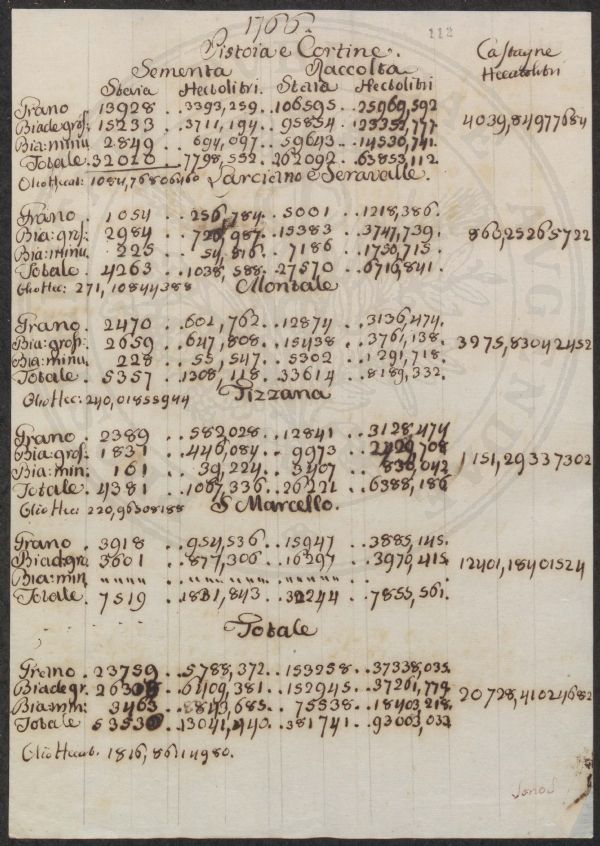 1766.
112
Pistoia e Cortine.
Castagne
Sementa Raccolta
Hectolitri
Staia Hectolitri. Staia Hectolitri
Grano 13928 .. 3393,259. 106595 .. 25969,592
Biade gros: 15233 .. 3711,194 .. 95854 .. 23352,777.
4039,84977684
Bia: minu. 2849 .. 694,097 .. 59643 .. 14530,741.
Totale. 32010 .. 7798,552. 262092. 63853,112
Olio Hect: 1084,76806460 Larciano e Seravalle.
Grano . 1054 .. 256,784. 5001 .. 1218,386.
Bia: gros: 2984 .. 726,987. 15383 .. 3747,739.
860,25265722
Bia: minu. 225 .. 54,816. 7186 .. 1750,715.
Totale . 4263 .. 1038,588. 27570 .. 6716,841.
Olio Hec: 271,10844388 Montale
Grano . 2470 .. 601,762. 12874 .. 3136,474.
Bia: gros: 2659 .. 647,808. 15438 .. 3761,138.
3975,83042452
Bia: minu. 228 .. 55,547. 5302 .. 1291,718.
Totale . 5357 .. 1305,118. 33614 .. 8189,332.
Olio Hec: 240,01855944 Tizzana
Grano . 2389 .. 582,028 .. 12841 .. 3128,474
Bia: gros: 1831 .. 446,084 .. 9973
1151,29337302
Bia: min: 161 .. 39,224 .. 3407 .. 830,042
Totale . 4381 .. 1067,336. 26221 .. 6388,186
Olio Hec: 220,96308188 S Marcello.
Grano . 3918 .. 954,536 .. 15947 .. 3885,145.
Biade gra: 3601 .. 877,306 .. 16297 .. 3970,415.
12401,18401524
Bia: min
Totale . 7519 .. 1831,843 .. 32244 .. 7855,561.
Totale
Grano . 23759 .. 5788,372 .. 153258 .. 37338,035.
Biade gr. .. 6409,381 .. 152945 .. 37261,779.
20728,41024682
Bia: min: 3463 .. 843,685 .. 75538 .. 18403,218.
Totale .. 13041,440. 381741 .. 93003,032
Olio Hecat. 1816,86114980.